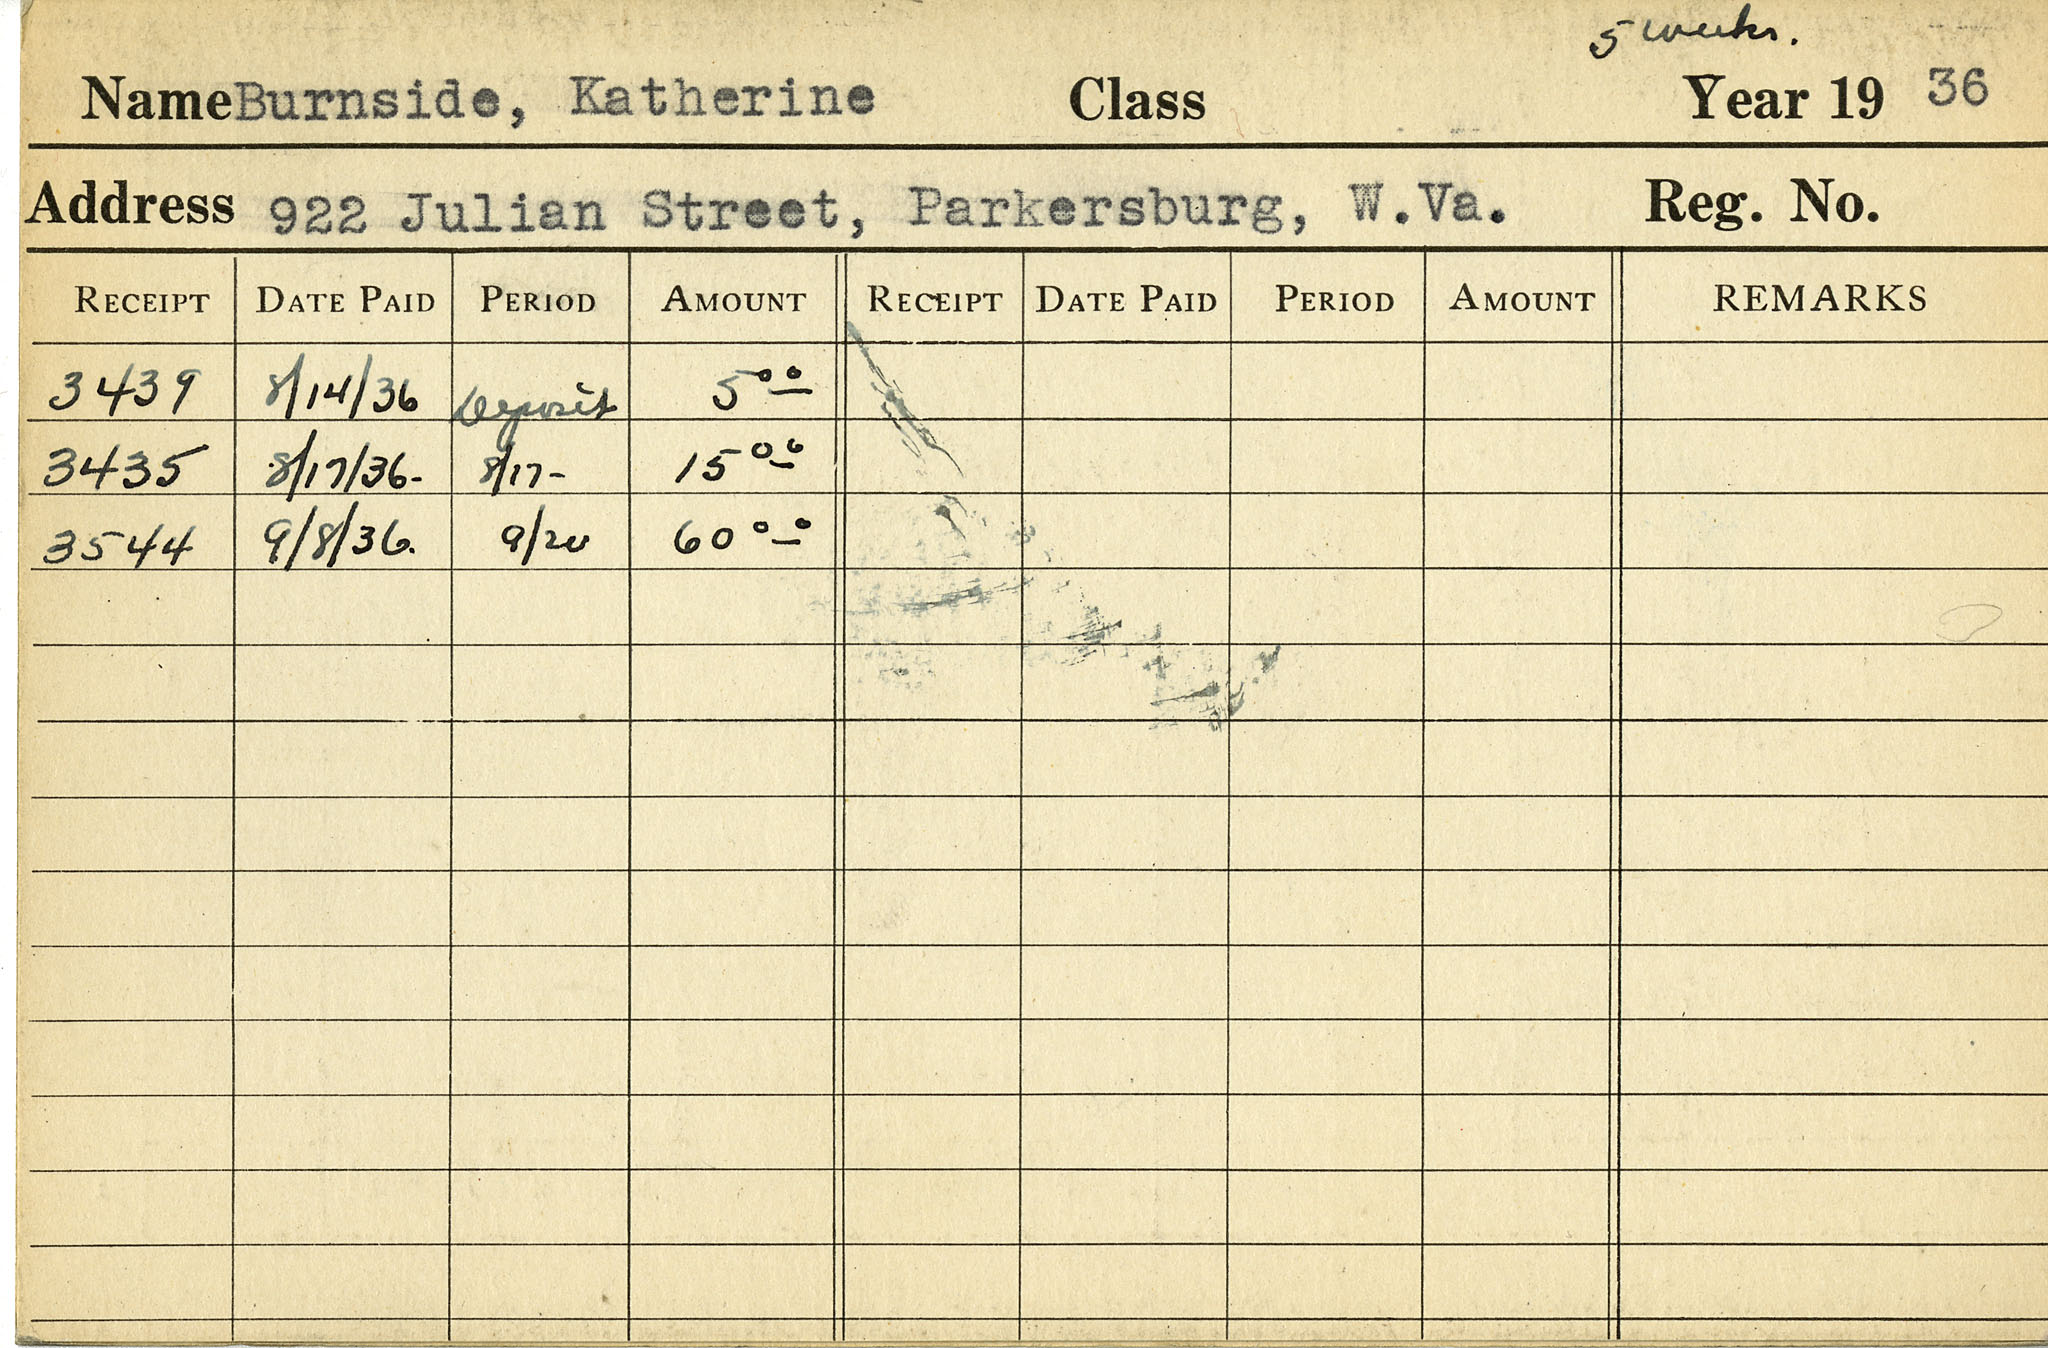 5 weeks.
Name Burnside, Katherine Class Year 19 36
Address 922 Julian Street, Parkersburg, W.Va. Reg. No.
RECEIPT DATE PAID PERIOD AMOUNT RECEIPT DATE PAID PERIOD AMOUNT REMARKS
3439 8/14/36 Deposit 5 00
3435 8/17/36- 8/17- 15 00
3544 9/8/36. 9/20 60 00